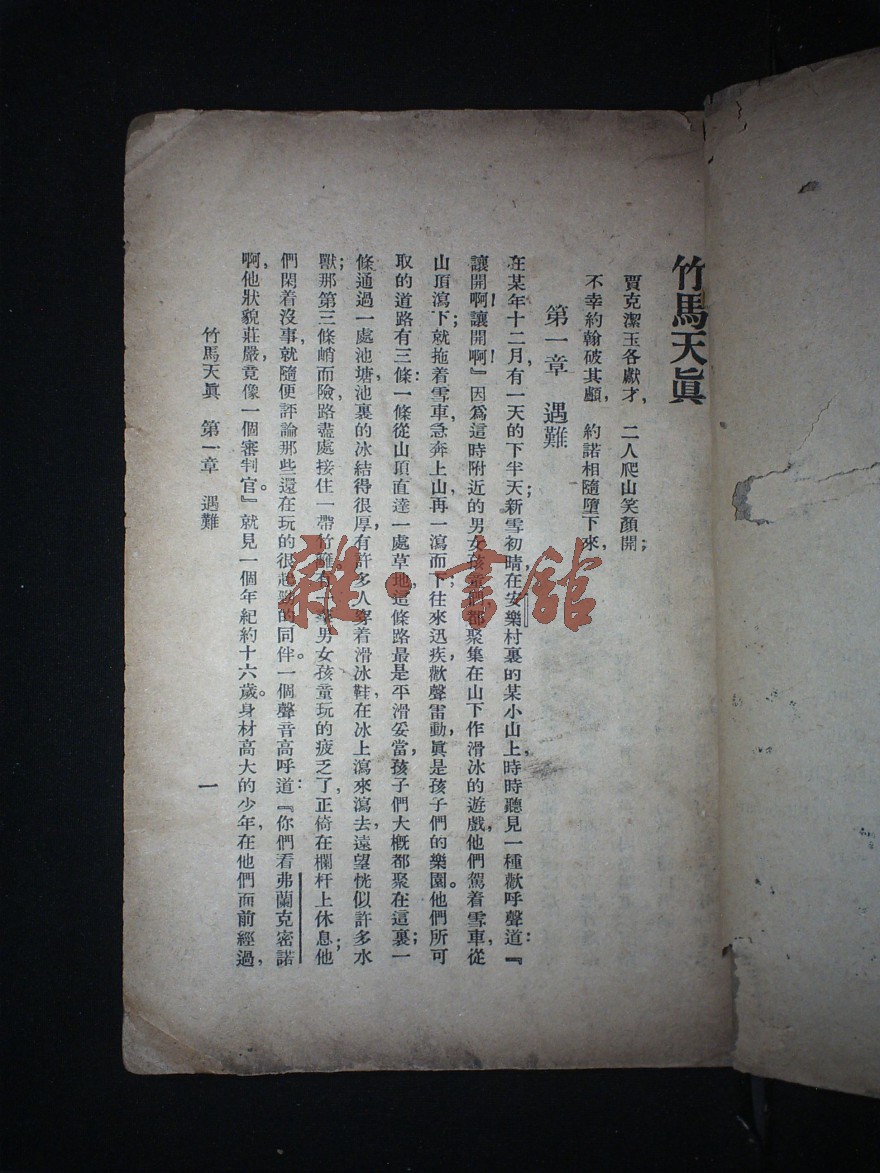 竹馬天眞
賈克潔玉各獻才，二人爬山笑顏開；
不幸約翰破其顱，約諾相隨墮下來，
第一章 遇難
在某年十二月，有一天的下半天；新雪初晴，在安樂村裏的某小山上，時時聽見一種歡呼聲道：『
讓開啊！讓開啊！』因爲這時附近的男女孩童們都聚集在山下作滑冰的遊戲，他們駕着雪車，從
山頂瀉下；就拖着雪車，急奔上山，再一瀉而下；往來迅疾，歡聲雷動，眞是孩子們的樂園。他們所可
取的道路有三條：一條從山頂直達一處草地，這條路最是平滑妥當，孩子們大槪都聚在這裏；一
條通過一處池塘，池裏的冰結得很厚，有許多人穿着滑冰鞋，在冰上瀉來瀉去，遠望恍似許多水
獸；那第三條峭而險，路盡處接住一帶竹籬，有男女孩童玩的疲乏了，正倚在欄杆上休息；他
們閑着沒事，就隨便評論那些還在玩的很起勁的同伴。一個聲音高呼道：『你們看弗蘭克密諾
啊，他狀貌莊嚴，竟像一個審判官。』就見一個年紀約十六歲。身材高大的少年，在他們面前經過，
竹馬天眞 第一章 遇難 一
雜·書舘